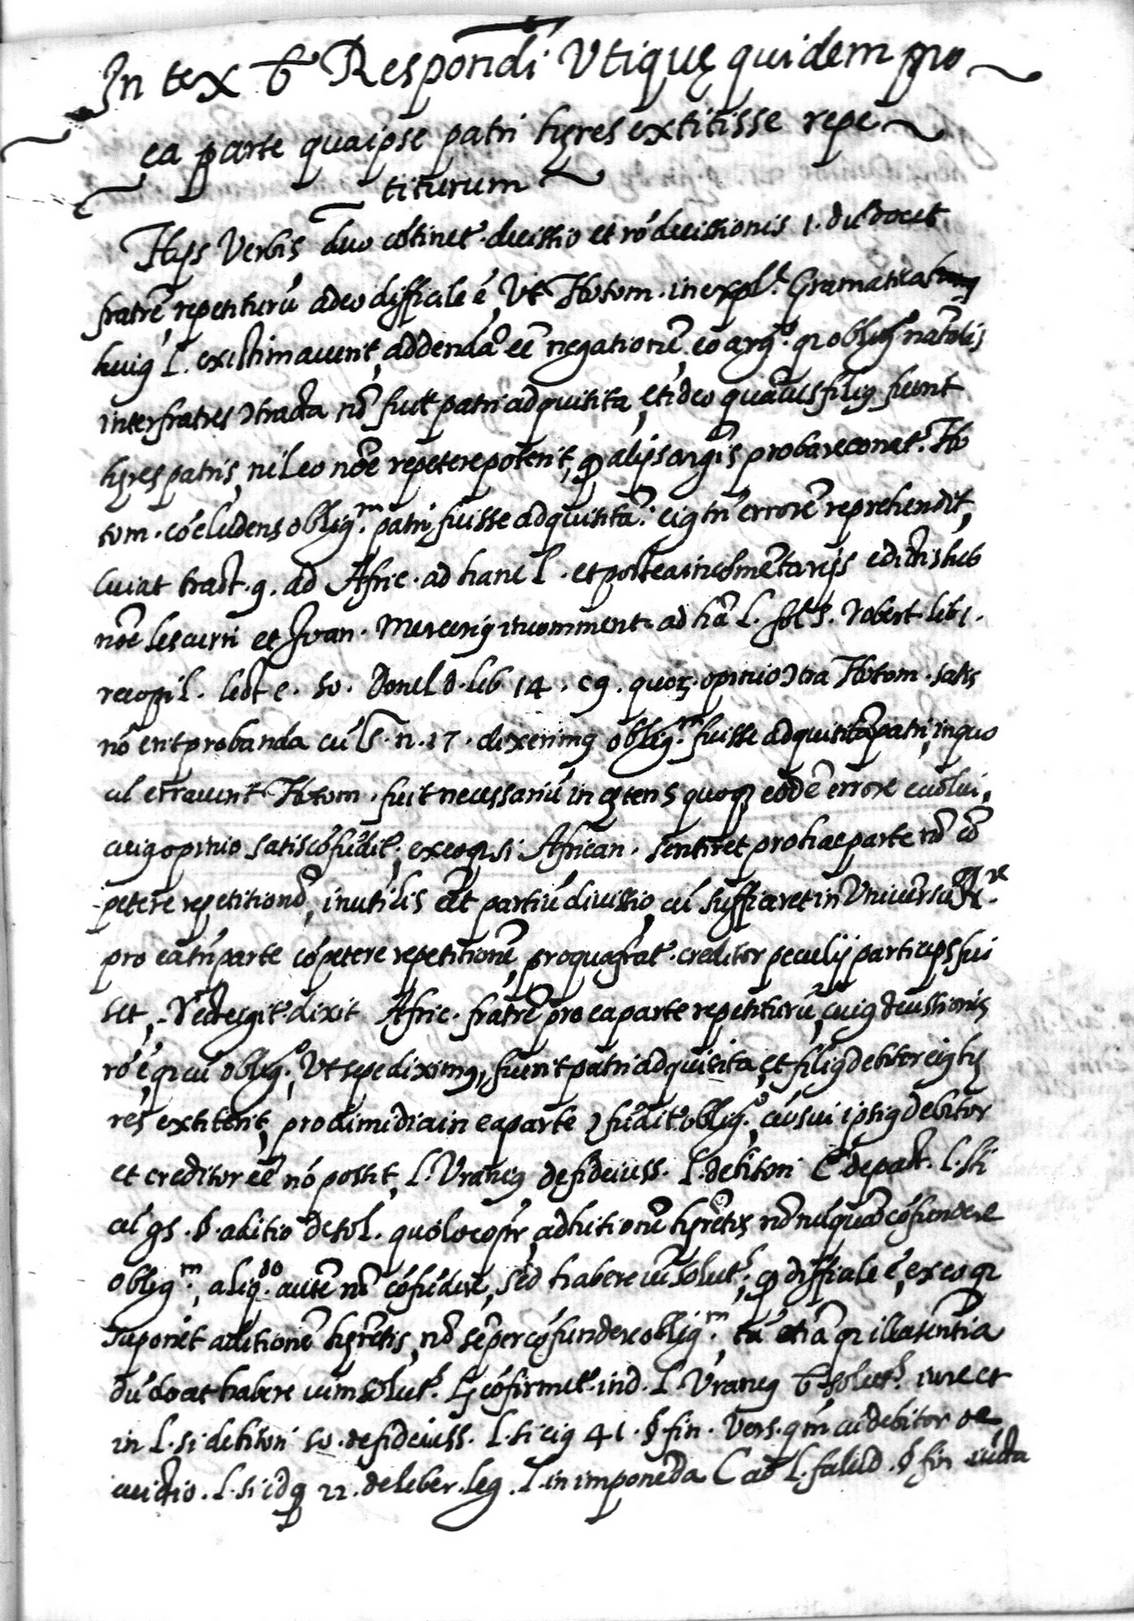 In tex ƀ Respondi Utiquę quidem pro
ea parte qua ipse patri hęres extitisse repe
titurum
His Verbis duo cōtinēt. decissio et rō decissionis 1. dū docet
fratrē, repetiturū adeo difficile ē, Ut Hotom. in expl. Gramaticali
huiꝰ L. existimaverit, addendā eē negationē eo argᵒ. qꝫ obligᵒ naturalis
inter fratres ɔtracta nō fuit patri adquisita, et ideo quāvis filiꝰ fuerit
hęres patris, nil eo noē repetere poterit, qꝫ alijs argīs probare conat. Ho
tom. cōcludens obligᵐ. patri fuisse adquisitā. eiꝰ tn̄ errorē reprehendit,
Cuiat tract. 9. ad Afric. ad hanc L. et postea in cōmētarijs edictis sub
noē Lescurri et Ivan. Merceriꝰ in comment. ad hā L. Robert. lib 1.
recopil. lect c. 50. Donel D. lib 14. c 9. quoꝝ opinio ɔtra Hotom. satis
nō erit probanda cū S. n. 17. dixerimꝰ obligᵐ. fuisse adquisitā patri, in quo
al erravent Hotom. fuit necessariū in cęteris quoqꝫ eodē errore evolvi,
cuiꝰ opinio satis cōfūdit, ex eo qꝫ si African. sentiret pro hac parte nō cō
petere repetitionē, inutilis eēt partiū divissio, cū sufficeret in Universū
pro ea tn̄ parte cōpetere repetitionē, pro qua frat. creditor peculij particeps fui
set, dixit Afric. fratrē pro ea parte repetiturū, cuiꝰ decissionis
rō ē, qꝫ cū obligᵒ, Ut sepe diximꝰ, fuerit patri adquisita, et filiꝰ debitor eiꝰ hę
res extiterit, pro dimidia in ea parte ɔfūdit obligᵒ, cū sui ipsiꝰ debitor
et creditor eē nō possit, L. Uraniꝰ de fideiuss. L. debitori C de pact. L. sti
cū gs. § aditio de sol. quo loco pr, aditionē hęretis nō nūquā cōfundere
obligᵐ, aliqᵈᵒ. autē nō cōfūdire, sed habere vim solut, qꝫ difficile ē, ex eo qꝫ
suponit aditionē hęretis, nō sēper cōfundere obligᵐ, tū etiā qꝫ illa sententia
dū docet habere vim solut. cōfirmēt. in d. L Uraniꝰ ƀ solut. iure et
in L. si debitori 50. de fideiuss. L. si eiꝰ 41. § fin. Vers. qm̄ cū debitor de
evictio. L. si id qꝫ 22. de liber. leg. L. in imponēda C ad L. falcid. § fin iūcta